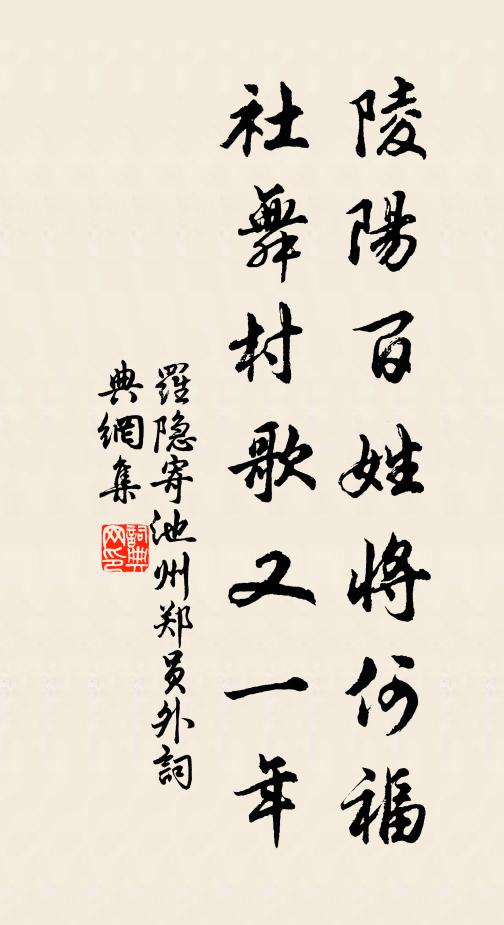 陵陽百姓將何福
社舞村歌又一年
羅隐寄池州郑员外詞
典網集
詞典
网印